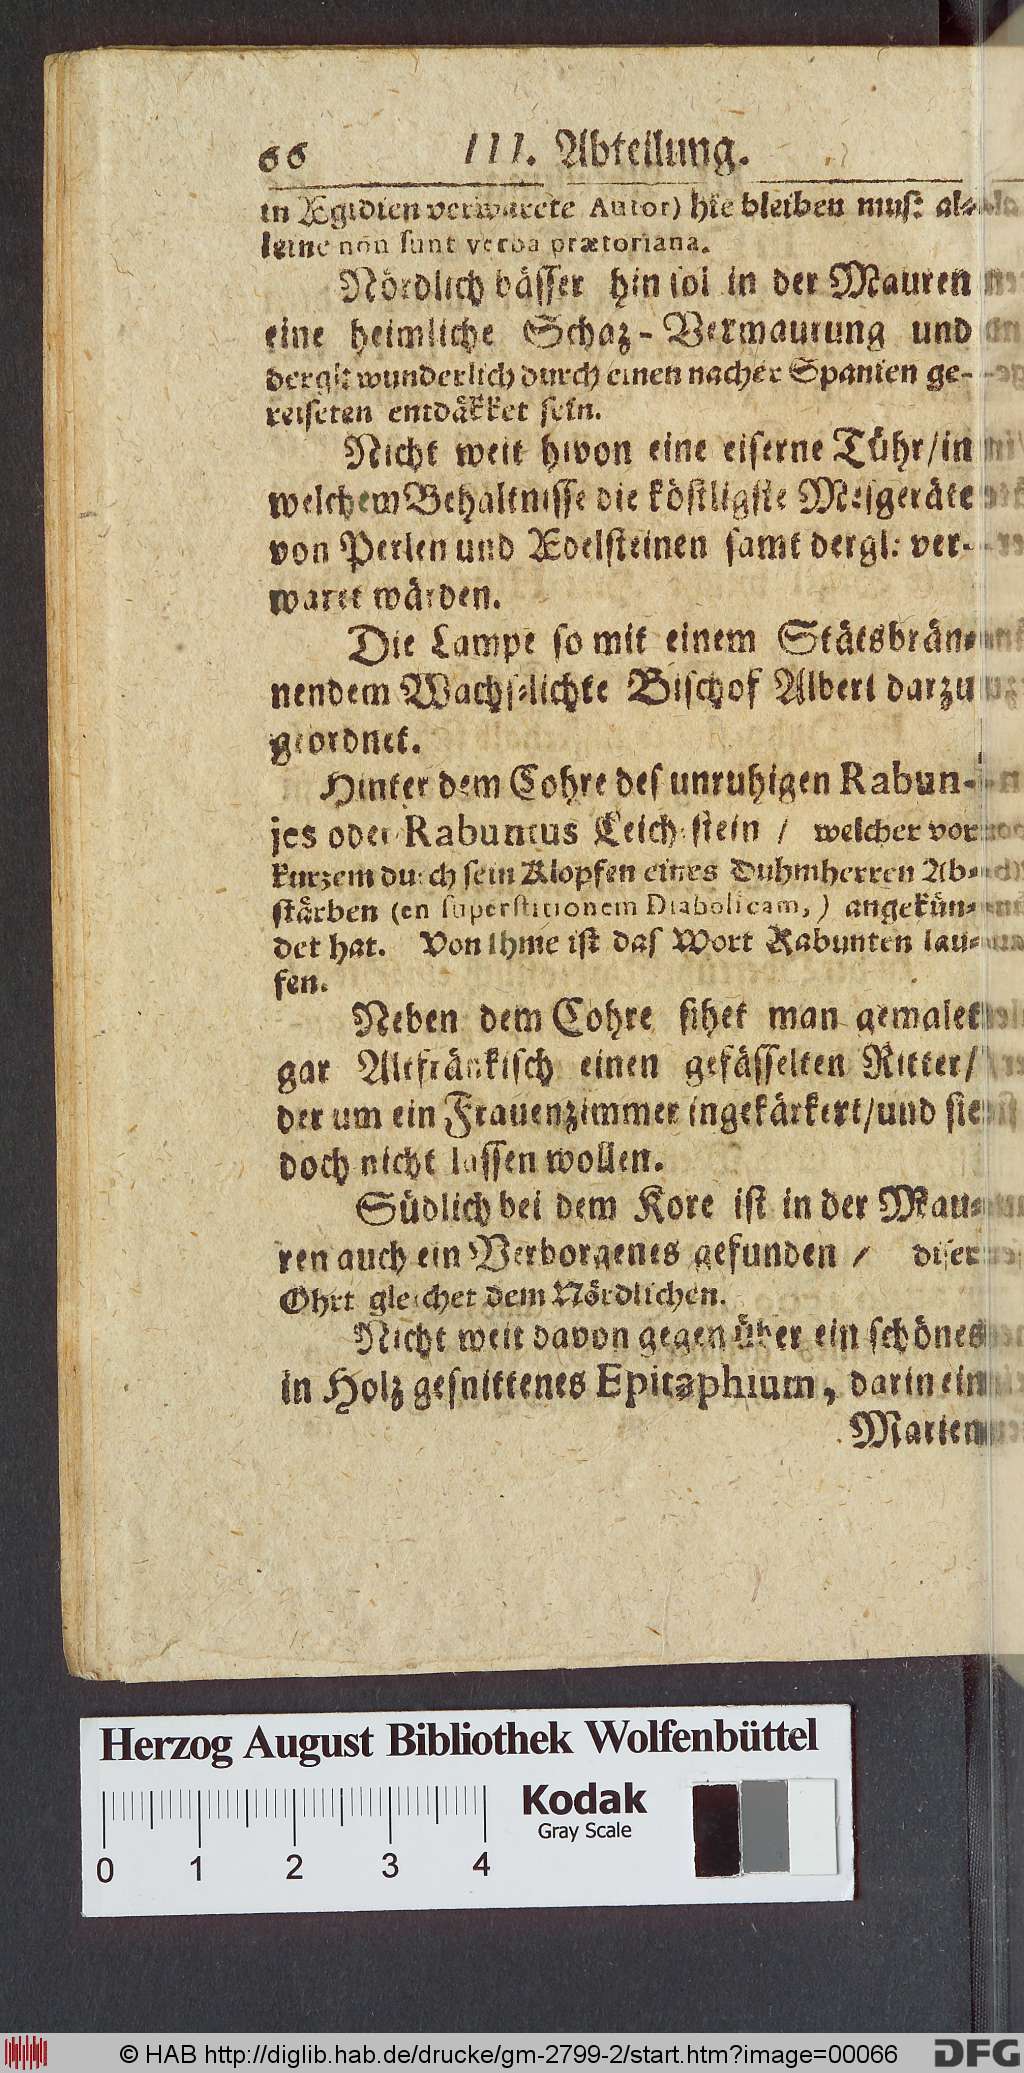 66 III. Abteilung.
in Ægidien verwarete Autor) hie bleiben mus: al⸗
leine non sunt verba prætoriana.
Nördlich bässer hin sol in der Mauren
eine heimliche Schaz-Vermaurung und
dergl: wunderlich durch einen nacher Spanien ge-
reiseten entdäkket sein.
Nicht weit hivon eine eiserne Tühr/in
welchem Behaltnisse die köstligste Mesgeräte
von Perlen und Ædelsteinen samt dergl: ver-
waret wärden.
Die Lampe so mit einem Stätsbrän⸗
nendem Wachs⸗lichte Bischof Albert darzu
geordnet.
Hinter dem Cohre des unruhigen Rabun-
jes oder Rabuntus Leich⸗stein / welcher vor
kurzem durch sein Klopfen eines Duhmherren Ab⸗
stärben (en superstitionem Diabolicam,) angekün⸗
det hat. Von Ihme ist das Wort Rabunten lau⸗
fen.
Neben dem Cohre sihet man gemalet
gar Altfränkisch einen gefässelten Ritter/
der um ein Frauenzimmer ingekärkert/und sie
doch nicht lassen wollen.
Südlich bei dem Kore ist in der Mau⸗
ren auch ein Verborgenes gefunden / diser
Ohrt gleichet dem Nördlichen.
Nicht weit davon gegen über ein schönes
in Holz gesnittenes Epitaphium, darin ein
Marien
Herzog August Bibliothek Wolfenbüttel
Kodak
Gray Scale
0 1 2 3 4
© HAB http://diglib.hab.de/drucke/gm-2799-2/start.htm?image=00066
DFG